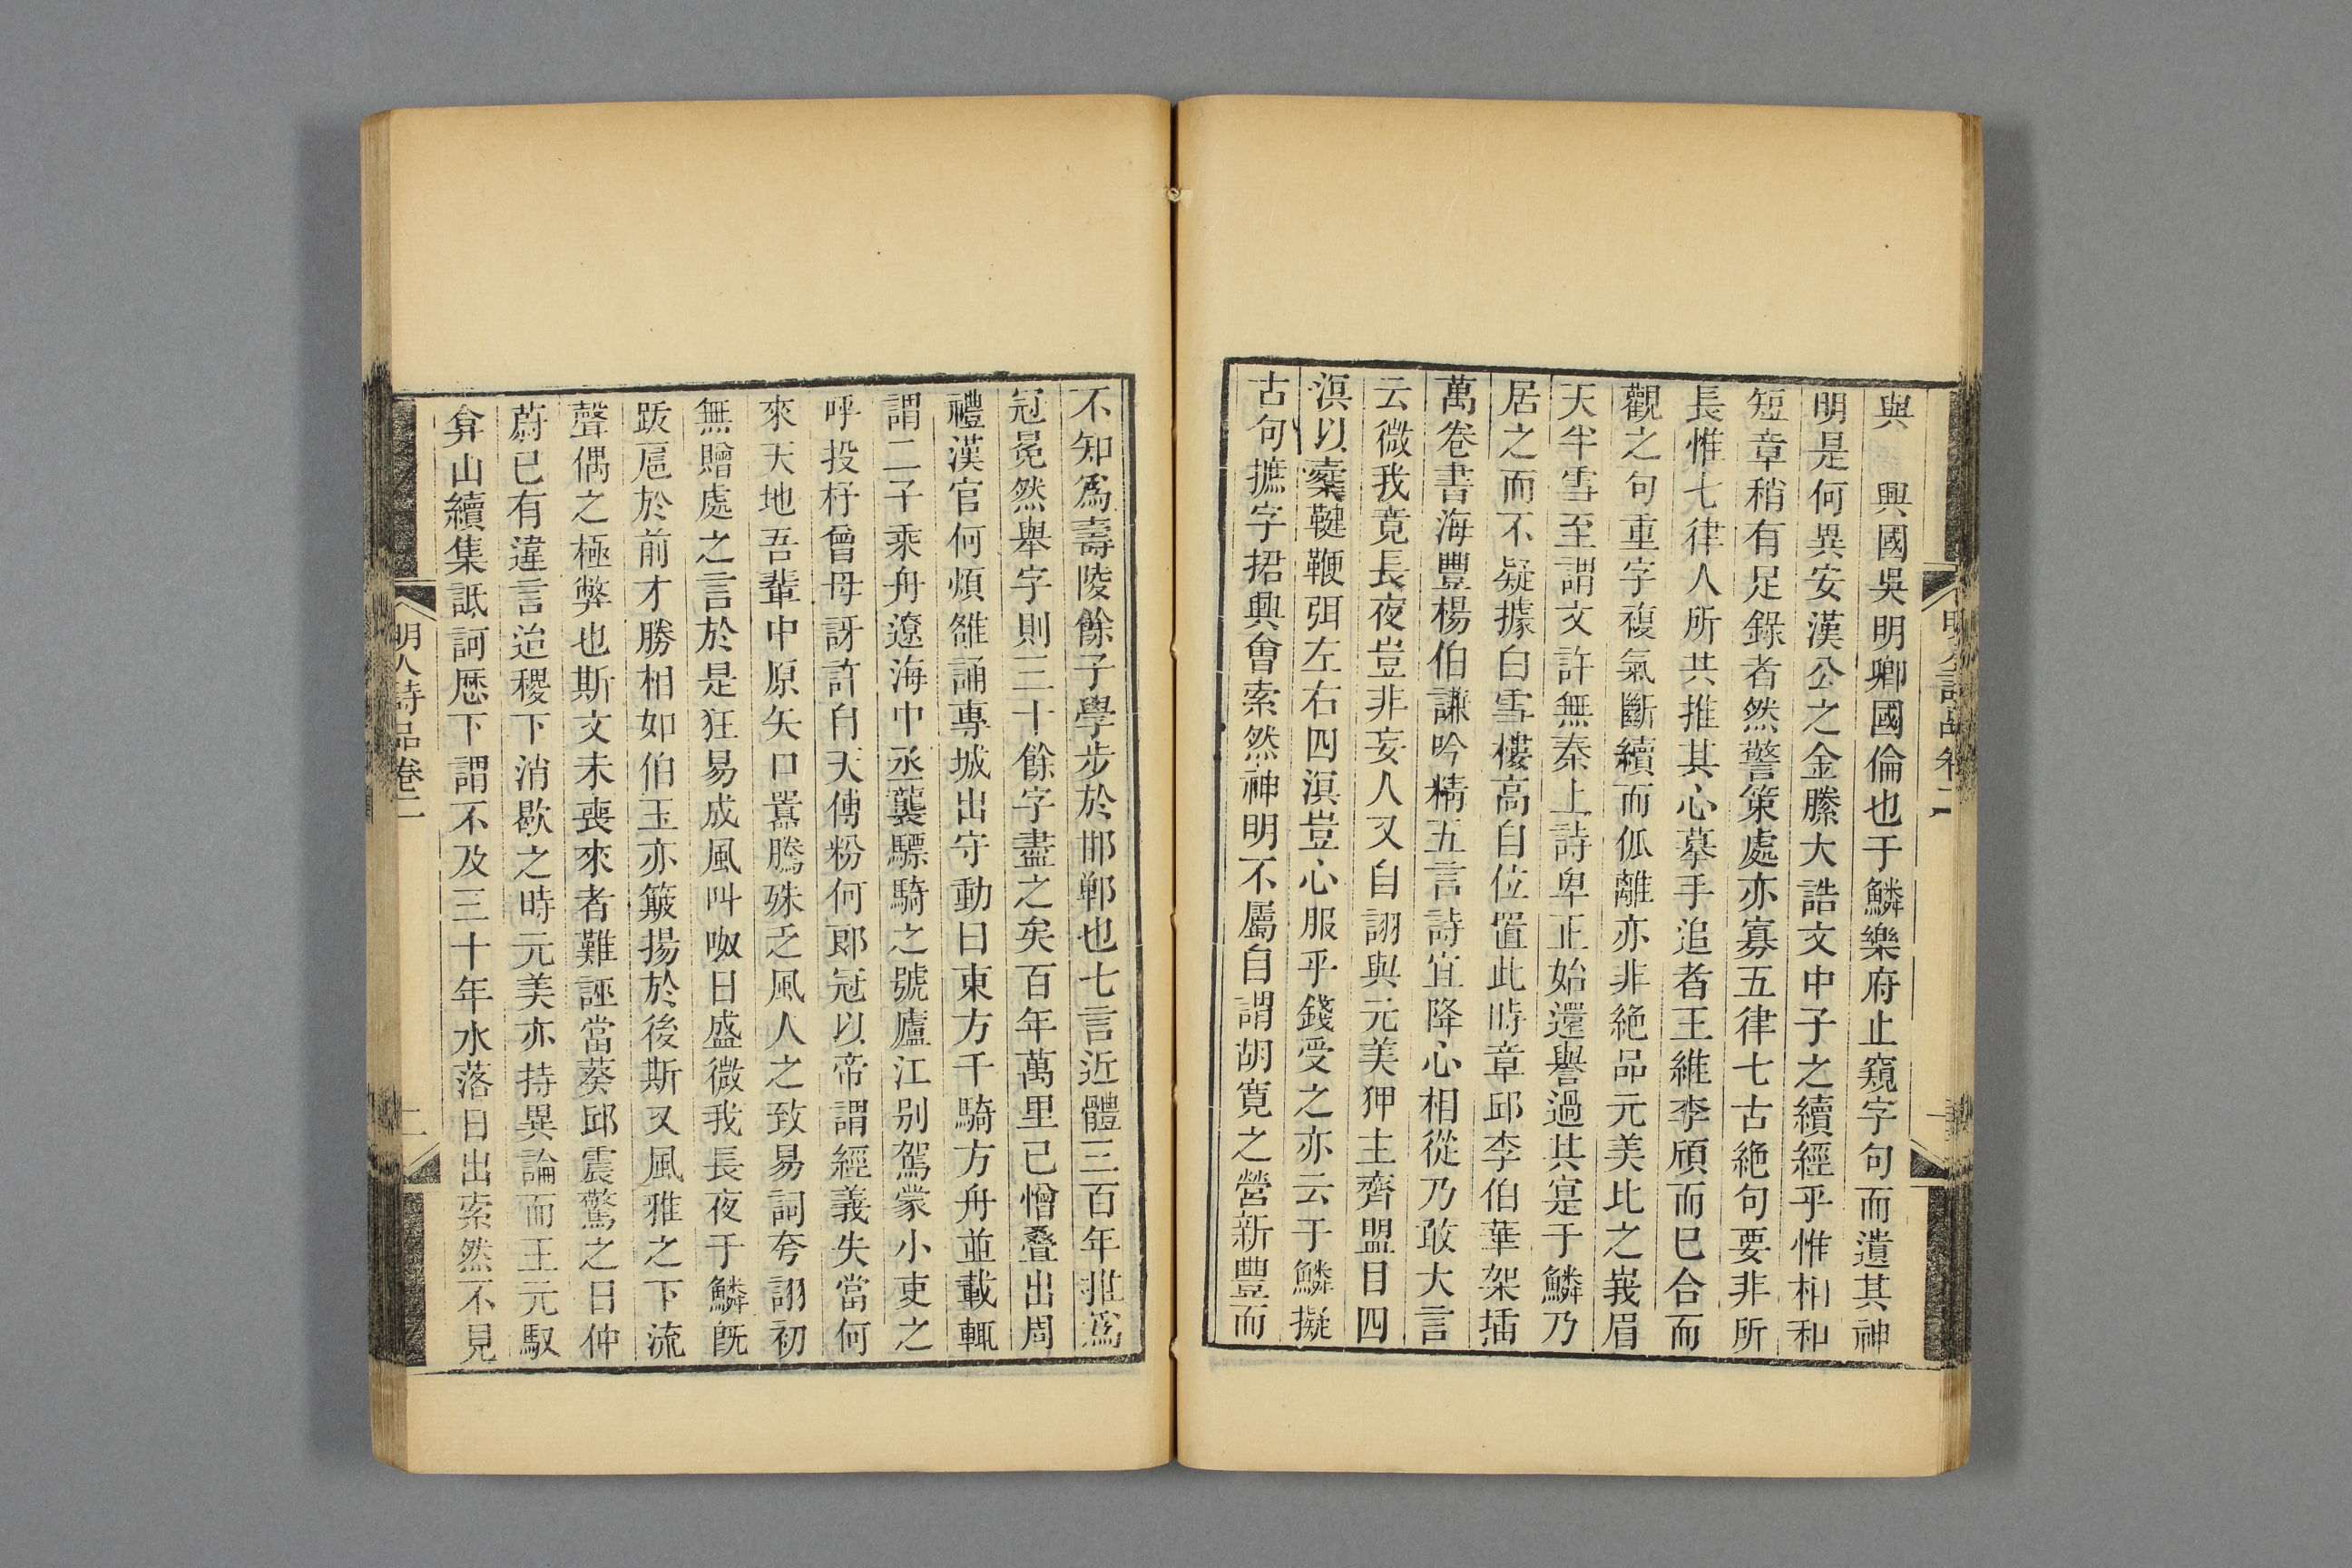 明人詩品卷二
與　興國吳明卿國倫也于鱗樂府止窺字句而遺其神
明是何異安漢公之金縢大誥文中子之續經乎惟相和
短章稍有足錄者然警策處亦寡五律七古絶句要非所
長惟七律人所共推其心摹手追者王維李頎而已合而
觀之句重字複氣斷續而伭離亦非絶品元美比之峩眉
天半雪至謂文許無秦上詩卑正始還譽過其寔于鱗乃
居之而不疑據白雪樓高自位置此時章邱李伯華架插
萬卷書海豐楊伯謙吟精五言詩宜降心相從乃敢大言
云微我竟長夜豈非妄人又自詡與元美狎主齊盟目四
溟以櫜鞬鞭弭左右四溟豈心服乎錢受之亦云于鱗擬
古句摭字捃興會索然神明不屬自謂胡寬之營新豐而
不知爲壽陵餘子學步於邯鄲也七言近體三百年推爲
冠冕然舉字則三十餘字盡之矣百年萬里已憎疊出周
禮漢官何煩雒誦專城出守動曰東方千騎方舟並載輒
謂二子乘舟遼海中丞襲驃騎之號廬江别駕蒙小吏之
呼投杼曾母訝許自天傅粉何郎冠以帝謂經義失當何
來天地吾輩中原矢口囂騰殊乏風人之致易詞夸詡初
無贈處之言於是狂易成風叫呶日盛微我長夜于鱗旣
跋扈於前才勝相如伯玉亦簸揚於後斯又風雅之下流
聲偶之極弊也斯文未喪來者難誣當葵邱震驚之日仲
蔚已有違言迨稷下消歇之時元美亦持異論而王元馭
弇山續集詆訶歴下謂不及三十年水落日出索然不見
明人詩品卷二
二